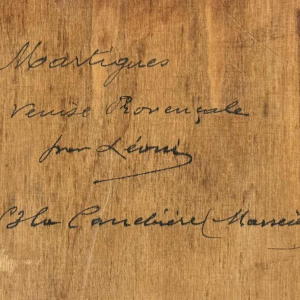 Martigues
Venise Provençale
par Léoni
la Canebière (Marseil